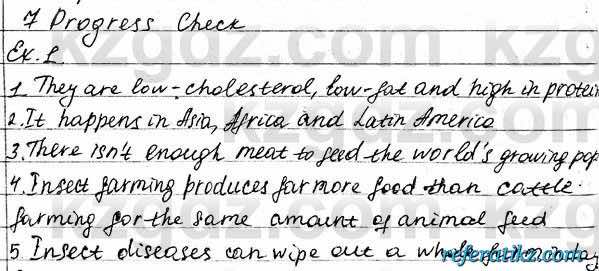 7 Progress Check
Ex. 1.
1. They are low-cholesterol, low-fat and high in protein
2. It happens in Asia, Africa and Latin America
3. There isn't enough meat to feed the world's growing pop
4. Insect farming produces far more food than cattle
farming for the same amount of animal feed
5. Insect diseases can wipe out a whole farm in
referatikz.com